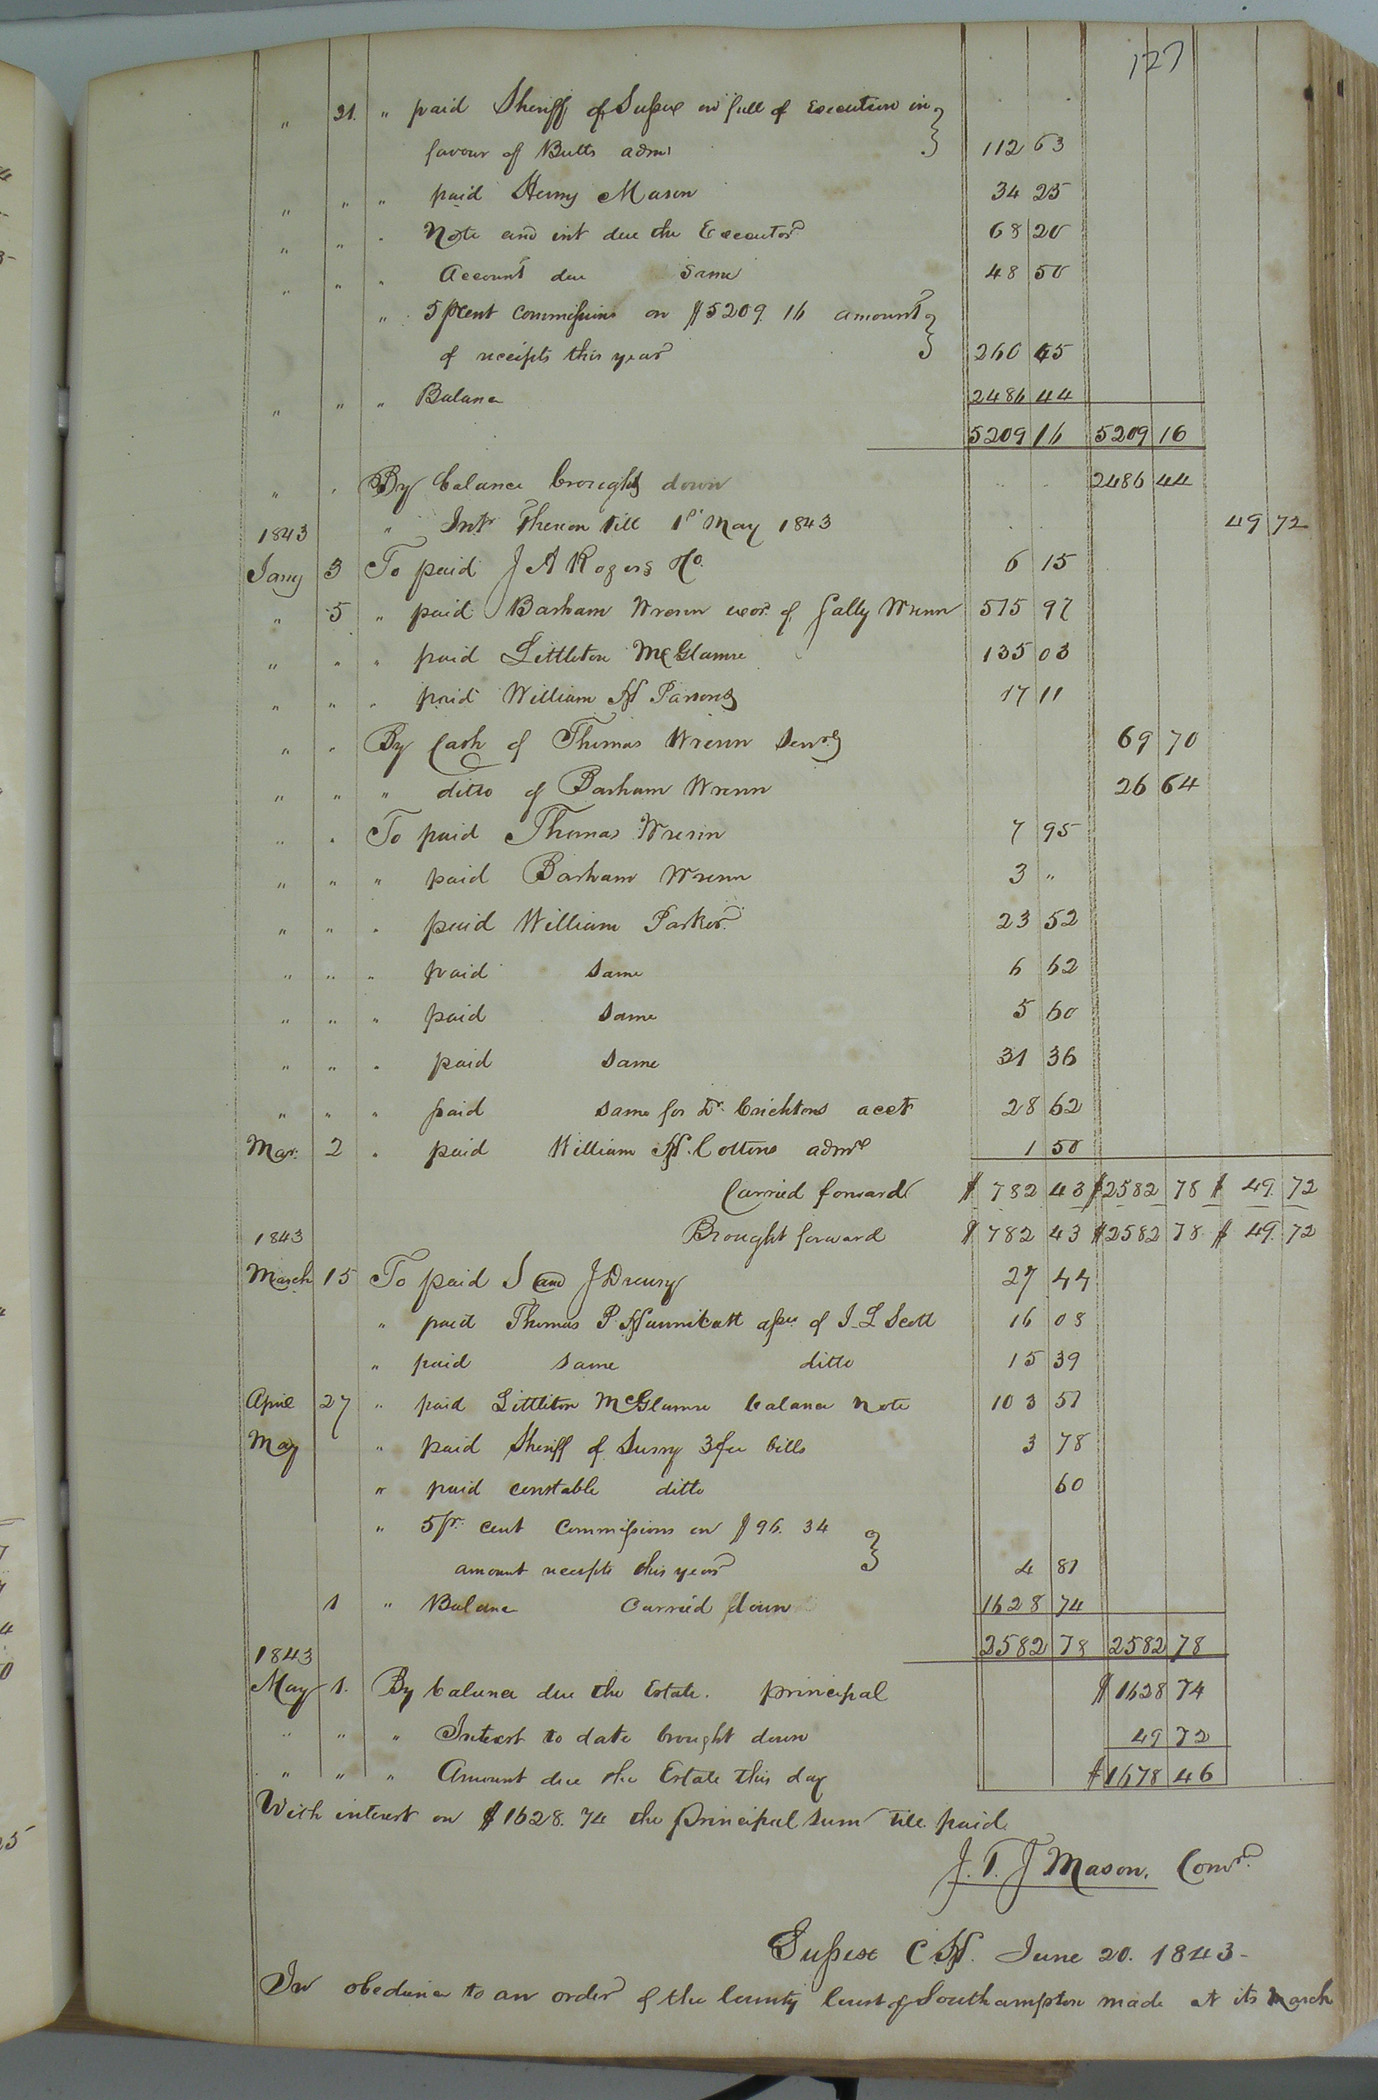 127
" 31. " paid Sheriff of Sussex in full of Execution in
favour of Butts admr 112 63
" " " paid Henry Mason 34 25
" " " Note and int due the Executor 68 20
" " " Account due same 48 50
" 5 pCent Commissions on $5209.16 amount
of receipts this year 260 45
" " " Balance 2486 44
5209 16 5209 16
" " By balance brought down 2486 44
1843 " Intr Thereon till 1st May 1843 49 72
Jany 3 To paid J A Rogers 6 15
" 5 " paid Barham Wrenn exor. of Sally Wrenn 515 97
" " " paid Littleton McGlamre 135 03
" " " paid William H Parsons 17 11
" " By Cash of Thomas Wrenn Senr 69 70
" " " ditto of Barham Wrenn 26 64
" " To paid Thomas Wrenn 7 95
" " " paid Barham Wrenn 3 "
" " " paid William Parker 23 52
" " " paid same 6 62
" " " paid same 5 60
" " " paid same 31 36
" " " paid same for Dr. Crichtons acct 28 62
Mar: 2 " paid William H. Cottons admr 1 50
Carried forward $ 782 43 $2582 78 $ 49. 72
1843 Brought forward $ 782 43 $2582 78 $ 49. 72
March 15 To paid S and J Drewry 27 44
" paid Thomas P Hunnicutt assee of J L Scott 16 08
" paid same ditto 15 39
April 27 " paid Littleton McGlamre balance note 103 51
May " paid Sheriff of Surry 3 fee bills 3 78
" paid constable ditto 60
" 5 pr. cent Commissions on $96.34
amount receipts this year 4 81
1 " Balance Carried down 1628 74
2582 78 2582 78
1843
May 1. By balance due the Estate. principal $1628 74
" " " Interest to date brought down 49 72
" " " Amount due the Estate this day $1678 46
With interest on $1628.74 the principal sum till paid.
J. T. J Mason, Comr.
Sussex C H. June 20. 1843-
In obedience to an order of the County Court of Southampton made at its March